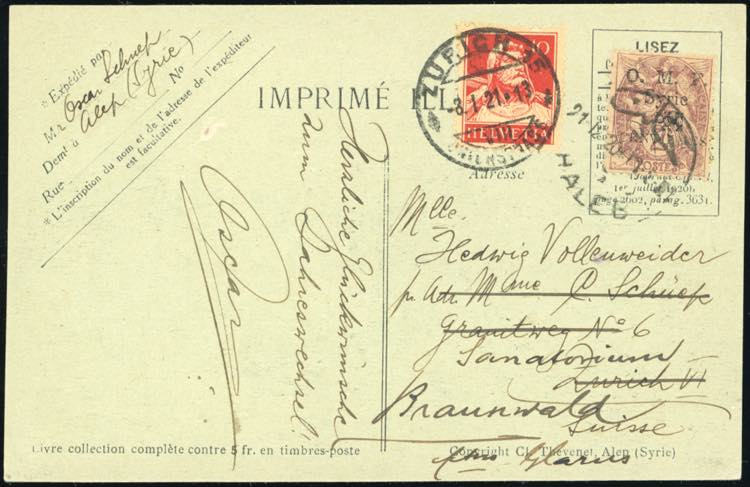 * Expédié par
Mr Oscar Schuep
Alep (Syrie)
Demt à
Rue
No
* L'inscription du nom et de l'adresse de l'expéditeur
est facultative.
IMPRIMÉ ILL
Herzliche Glückwünsche
zum Jahreswechsel!
Oscar
Livre collection complète contre 5 fr. en timbres-poste
ZÜRICH 15
-8.I.21.-13
10
HELVETIA
LISEZ
O. M.
Syrie
POSTES
HALEB
1er juillet 1920)
page 2602, parag. 3631.
Adresse
Mlle.
Hedwig Vollenweider
pr. Adr. Mme C. Schüep
Granitweg No 6
Sanatorium
Zurich VI
Braunwald
Suisse
Glarus
Copyright Cl. Thévenet, Alep (Syrie)